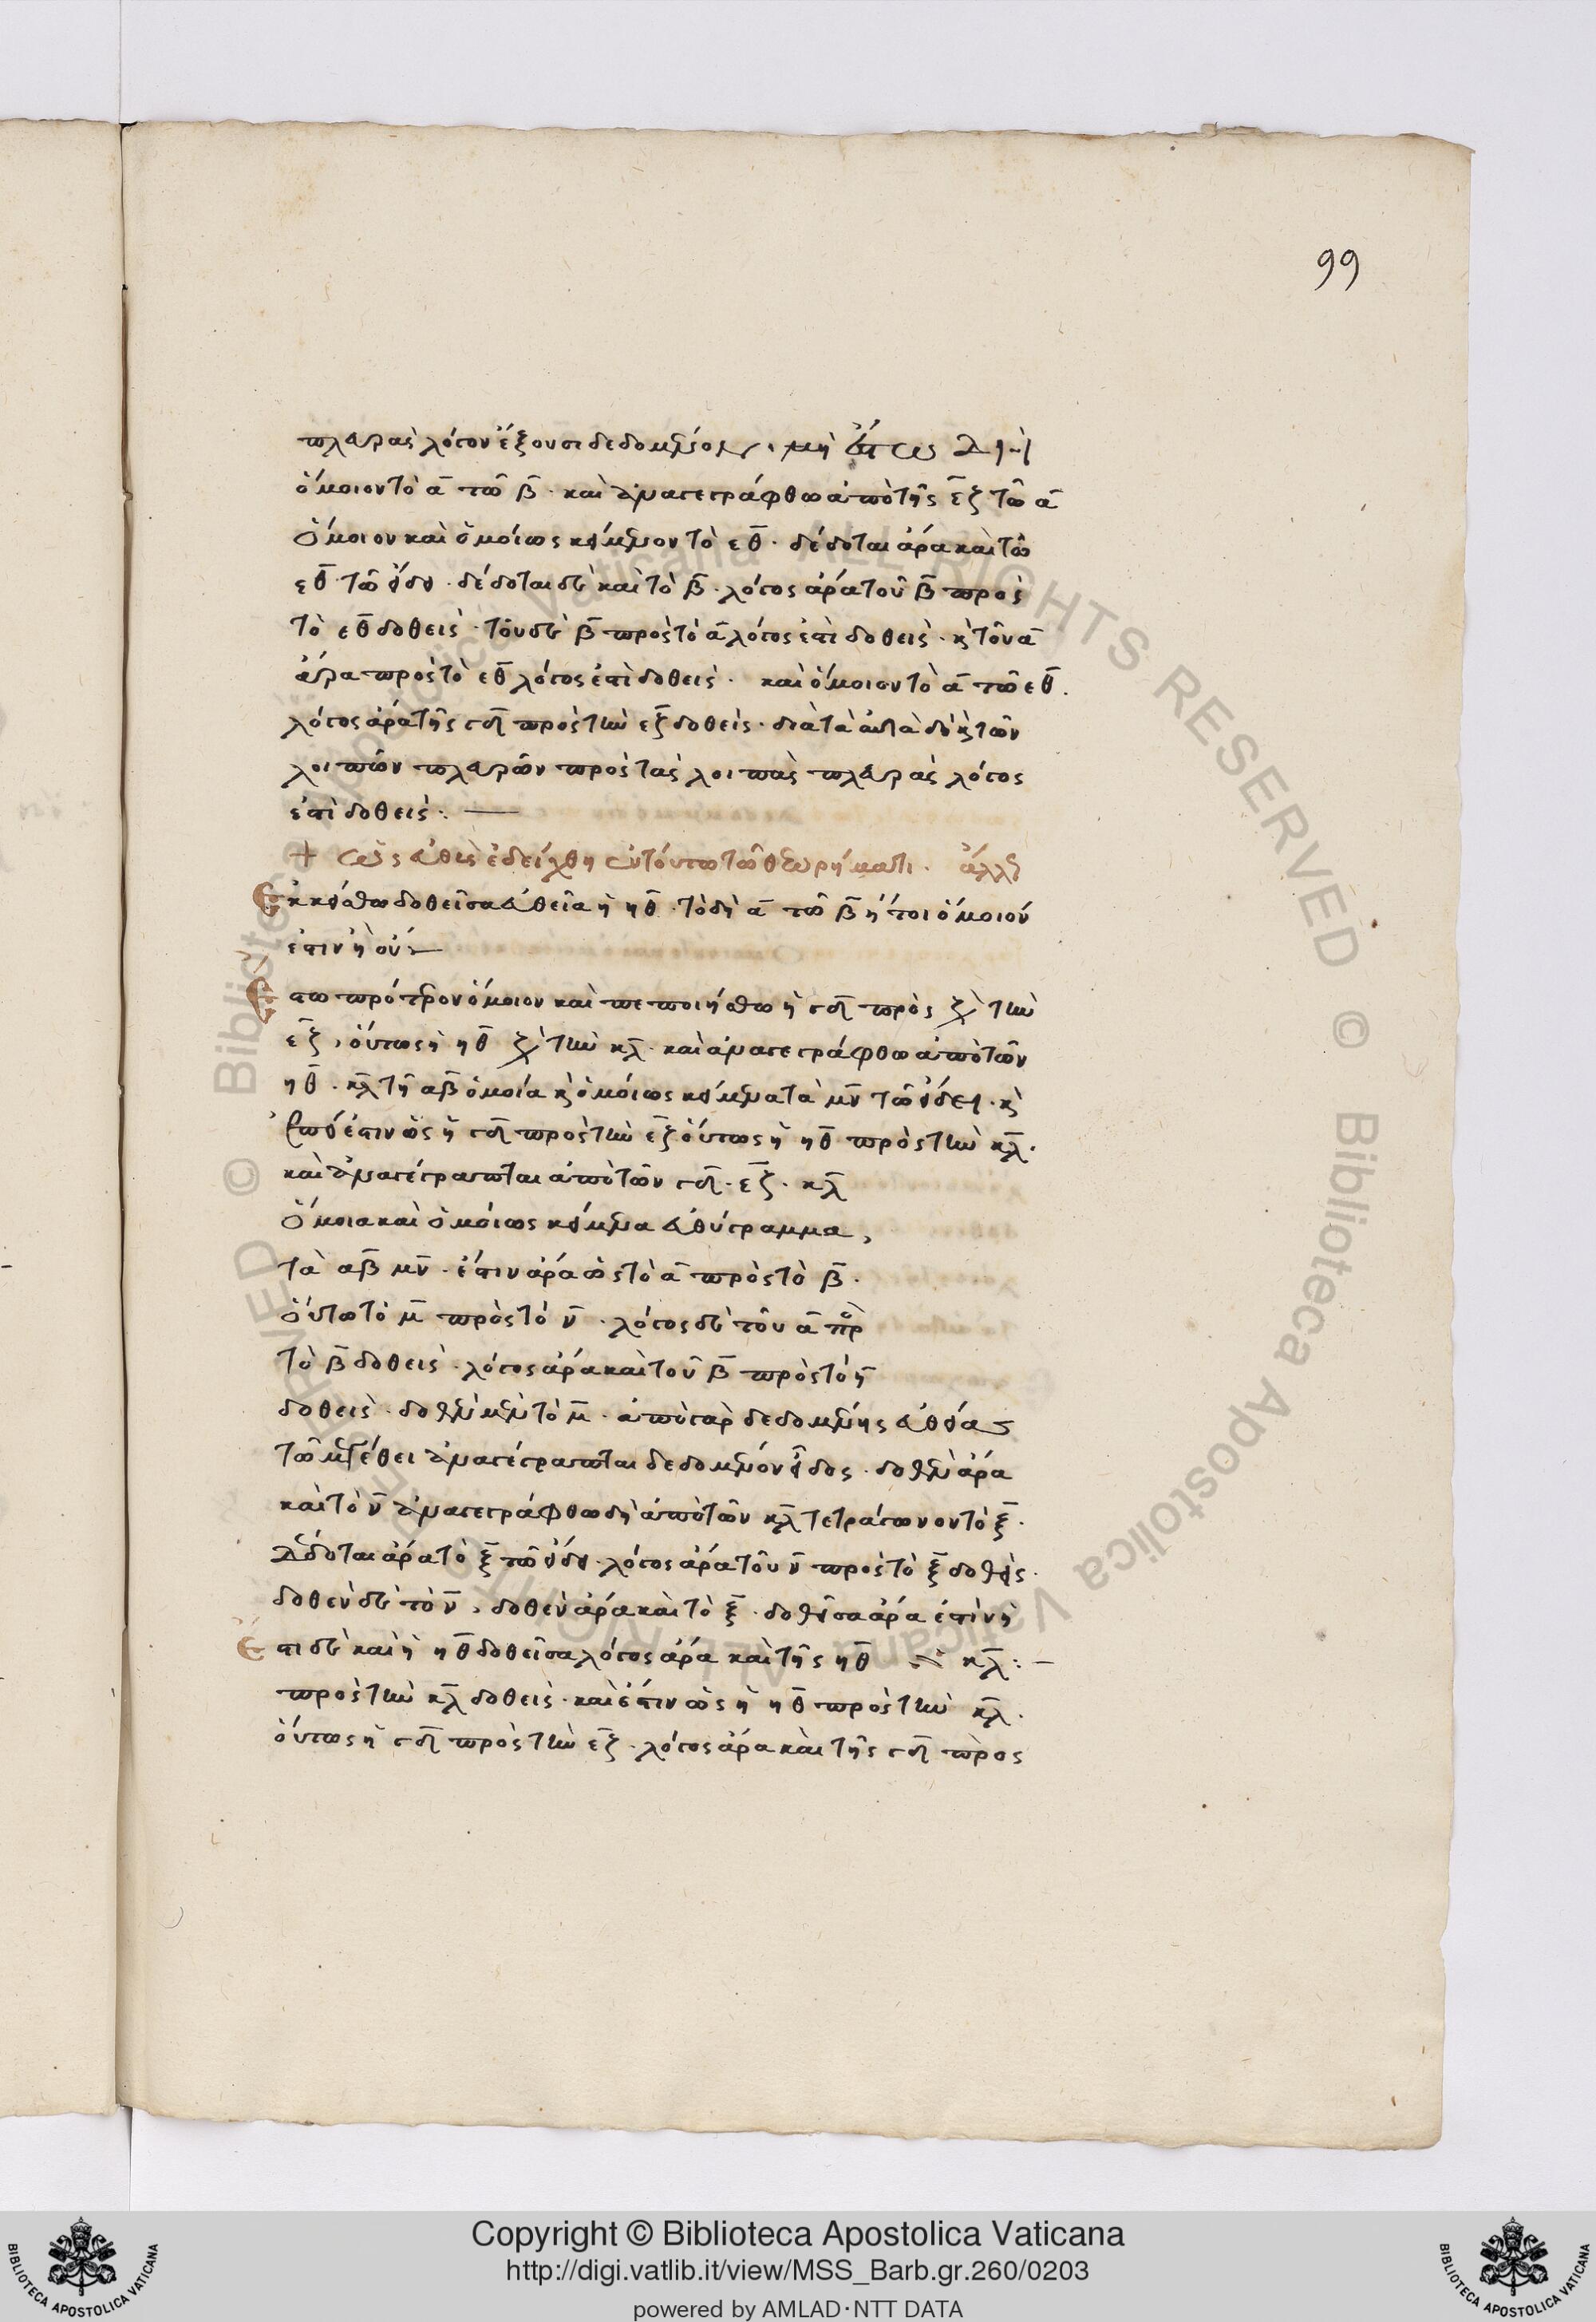 99
πλευρὰς λόγον ἕξουσι δεδομένον· μὴ ἔστω δὴ
ὅμοιον τὸ α̅ τῶ β̅· καὶ ἀναγεγράφθω ἀπὸ τῆς ε̅ζ τῶ α̅
ὅμοιον καὶ ὁμοίως κείμενον τὸ εθ̅· δέδοται ἄρα καὶ τῶ
εθ̅ τῶ εἴδει· δέδοται δὲ καὶ τὸ β̅· λόγος ἄρα τοῦ β̅ πρὸς
τὸ εθ̅ δοθείς· τοῦ δὲ β̅ πρὸς τὸ α̅ λόγος ἐστὶ δοθείς· κ̀ τοῦ α̅
ἄρα πρὸς τὸ εθ̅ λόγος ἐστὶ δοθείς· καὶ ὅμοιον τὸ α̅ τῶ εθ̅.
λόγος ἄρα τῆς γδ̅ πρὸς τὴν εζ̅ δοθείς· διὰ τὰ αὐτὰ δὴ κ̀ τῶν
λοιπῶν πλευρῶν πρὸς τὰς λοιπὰς πλευρὰς λόγος
ἐστὶ δοθείς:
+ ὡς εὐθὺς ἐδείχθη ἐν τούτω τῶ θεωρήματι. ἄλλως
Εκκείσθω δοθεῖσα εὐθεῖα ἡ ηθ̅· τὸ δὴ α̅ τῶ β̅ ἤτοι ὅμοιόν
ἐστιν ἢ οὔ:
Εστω πρότερον ὅμοιον καὶ πεποιήσθω ἡ γδ̅ πρὸς τὴν
ε̅ζ, οὕτως ἡ ηθ̅ τὴν κλ̅· καὶ ἀναγεγράφθω ἀπὸ τῶν
ηθ̅· κλ̅ τῆ αβ̅ ὁμοία κ̀ ὁμοίως κείμενα τὰ μν̅ τῶ εἴδει· κ̀
ἐπεί ἐστιν ὡς ἡ γδ̅ πρὸς τὴν εζ̅ οὕτως ἡ ηθ̅ πρὸς τὴν κλ̅.
καὶ ἀναγέγραπται ἀπὸ τῶν γδ̅· ε̅ζ· κλ̅
ὅμοια καὶ ὁμοίως κείμενα εὐθύγραμμα,
τὰ αβ̅ μν̅· ἔστιν ἄρα ὡς τὸ α̅ πρὸς τὸ β̅.
οὕτω τὸ μ̅ πρὸς τὸ ν̅· λόγος δὲ τοῦ α̅ πρὸ
τὸ β̅ δοθείς· λόγος ἄρα καὶ τοῦ β̅ πρὸς τὸ η̅
δοθείς· δοθὲν μὲν τὸ μ̅· ἀπὸ γὰρ δεδομένης εὐθείας
τῶ μεγέθει ἀναγέγραπται δεδομένον εἶδος· δοθὲν ἄρα
καὶ τὸ ν̅ ἀναγεγράφθω δὴ ἀπὸ τῶν κλ̅ τετράγωνον τὸ ξ̅.
δέδοται ἄρα τὸ ξ̅ τῶ εἴδει· λόγος ἄρα τοῦ ν̅ πρὸς τὸ ξ̅ δοθείς.
δοθὲν δὲ τὸ ν̅, δοθὲν ἄρα καὶ τὸ ξ̅· δοθεῖσα ἄρα ἐστὶν ἡ
Ἔστι δὲ καὶ ἡ ηθ̅ δοθεῖσα λόγος ἄρα καὶ τῆς ηθ̅ κλ̅:
πρὸς τὴν κλ̅ δοθείς· καὶ ἔστιν ὡς ἡ ηθ̅ πρὸς τὴν κλ̅.
οὕτως ἡ γδ̅ πρὸς τὴν εζ̅· λόγος ἄρα καὶ τῆς γδ̅ πρὸς
© Biblioteca Apostolica Vaticana ALL RIGHTS RESERVED
Copyright © Biblioteca Apostolica Vaticana
http://digi.vatlib.it/view/MSS_Barb.gr.260/0203
powered by AMLAD·NTT DATA
BIBLIOTECA APOSTOLICA VATICANA
BIBLIOTECA APOSTOLICA VATICANA